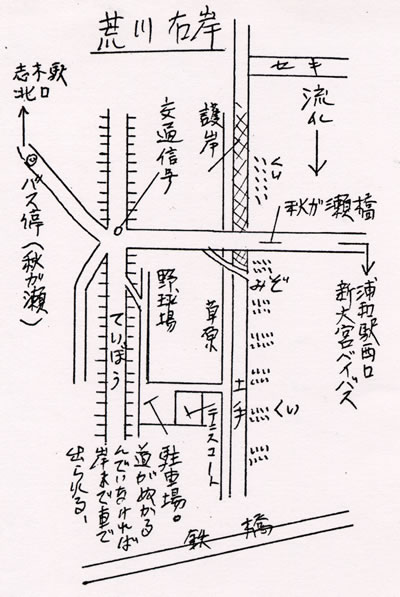 荒川右岸
志木駅
北口
バス停(秋が瀬)
交通信号
護岸
セキ
流れ
くい
秋が瀬橋
みぞ
浦和駅西口
新大宮バイパス
野球場
草原
ていぼう
土手
くい
テニスコート
駐車場。
道がぬかる
んでいなければ
岸まで車で
出られる、
鉄橋